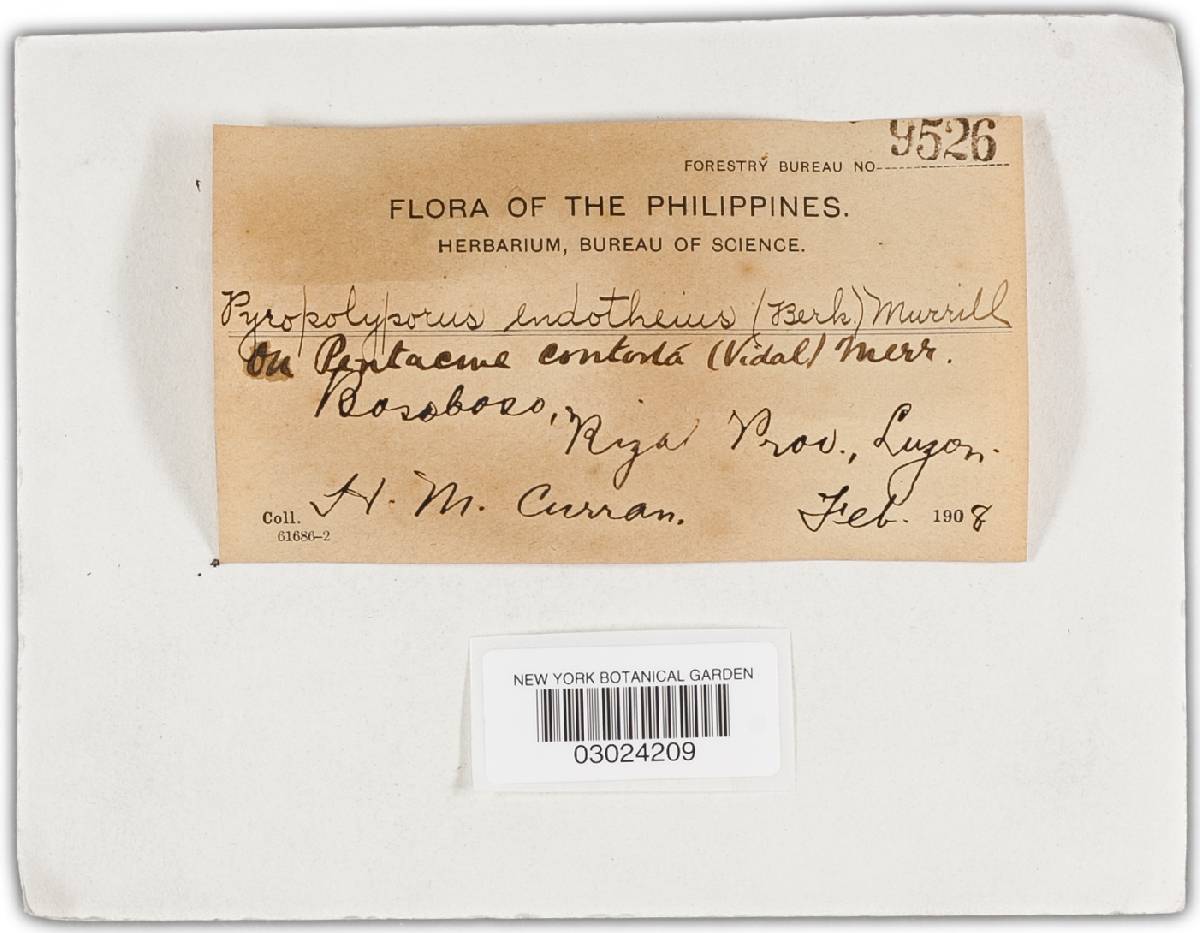 9526
FORESTRY BUREAU NO
FLORA OF THE PHILIPPINES.
HERBARIUM, BUREAU OF SCIENCE.
Pyropolyporus endotheius (Berk) Murrill
On Pentacme contorta (Vidal) Merr.
Bosoboso, Rizal Prov., Luzon.
Coll. H. M. Curran. Feb. 1908
61686-2
NEW YORK BOTANICAL GARDEN
03024209